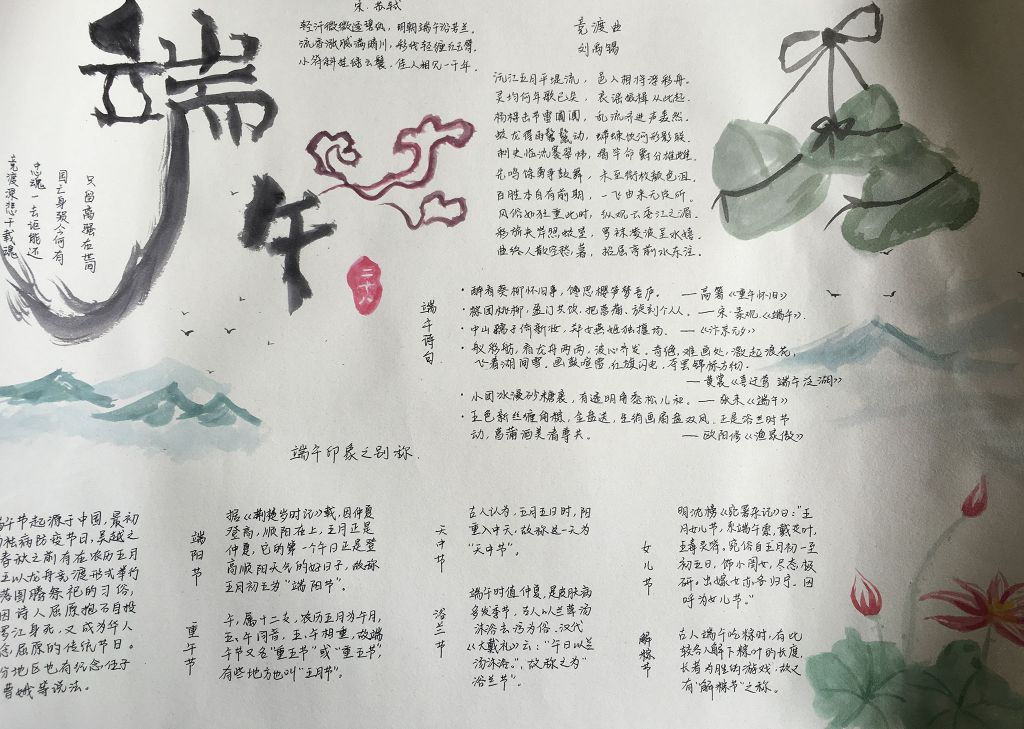 端午
宋·苏轼
轻汗微微透碧纨,明朝端午浴芳兰。
流香涨腻满晴川,彩线轻缠红玉臂。
小符斜挂绿云鬟,佳人相见一千年。
竞渡曲
刘禹锡
沅江五月平堤流,邑人相将浮彩舟。
灵均何年歌已矣,哀谣振楫从此起。
杨桴击节雷阗阗,乱流齐进声轰然。
蛟龙得雨鬐鬣动,螮蝀饮河形影联。
刺史临流褰翠帏,揭竿命爵分雄雌。
先鸣余勇争鼓舞,未至衔枚颜色沮。
百胜本自有前期,一飞由来无定所。
风俗如狂重此时,纵观云委江之湄。
彩旂夹岸照蛟室,罗袜凌波呈水嬉。
曲终人散空愁暮,招屈亭前水东注。
竞渡深悲千载魂
忠魂一去讵能还
国亡身殒今何有
只留离骚在世间
二十八
端午诗句
·醉看葵榴怀旧事,馋思樱笋梦吾庐。 —高翥《重午怀旧》
·榴团桃柳,盈门共饮,把菖蒲、旋刻个人人。 —宋·景观《端午》
·中山孺子倚新妆,郑女燕姬独擅场。 —《汴京元夕》
飞看湖间雪。画鼓喧雷,红旗闪电,夺罢锦标方彻。
—黄裳《喜迁莺 端午泛湖》
·小团冰浸砂糖裹,有透明角黍松儿和。 —张耒《端午》
·五色新丝缠角粽,金盘送,生绡画扇盘双凤。正是浴兰时节
动,菖蒲酒美清尊共。 —欧阳修《渔家傲》
端午印象之别称
午节起源于中国,最初
祛病防疫节日,吴越之
春秋之前有在农历五月
五以龙舟竞渡形式举行
落图腾祭祀的习俗,
因诗人屈原抱石自投
罗江身死,又成为华人
念屈原的传统节日。
分地区也有纪念伍子
曹娥等说法。
端阳节
据《荆楚岁时记》载,因仲夏
登高,顺阳在上,五月正是
仲夏,它的第一个午日正是登
高顺阳天气的好日子,故称
五月初五为“端阳节”。
重午节
午,属十二支,农历五月为午月,
五、午同音,五、午相重,故端
午节又名“重五节”或“重五节”,
有些地方也叫“五月节”。
天中节
古人认为,五月五日时,阳
重入中天,故称这一天为
“天中节”。
浴兰节
端午时值仲夏,是皮肤病
多发季节,古人以兰草汤
沐浴去污为俗。汉代
《大戴礼》云:“午日以兰
汤沐浴。”,故称之为“
浴兰节”。
女儿节
明沈榜《宛署杂记》曰:“五
月女儿节,系端午索,戴艾叶,
五毒灵符。宛俗自五月初一至
初五日,饰小闺女,尽态极
妍。出嫁女亦各归宁,因
呼为女儿节。”
解粽节
古人端午吃粽时,有比
较各人解下粽叶的长度,
长者为胜的游戏,故又
有“解粽节”之称。